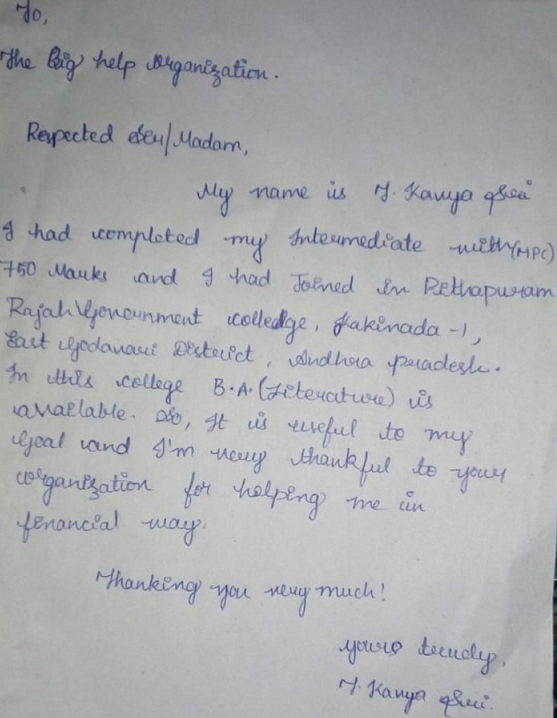 To,
The Big help organization.
Respected Sir/Madam,
My name is T. Kavya Sri
I had completed my Intermediate with (MPC)
750 Marks and I had Joined in Pethapuram
Rajah Government colledge, Kakinada-1,
East Godavari District, Andhra pradesh.
In this college B.A.(Literature) is
available. So, It is useful to my
Goal and I'm very thankful to your
organization for helping me in
financial way.
Thanking you very much!
yours truely,
T. Kavya Sri.